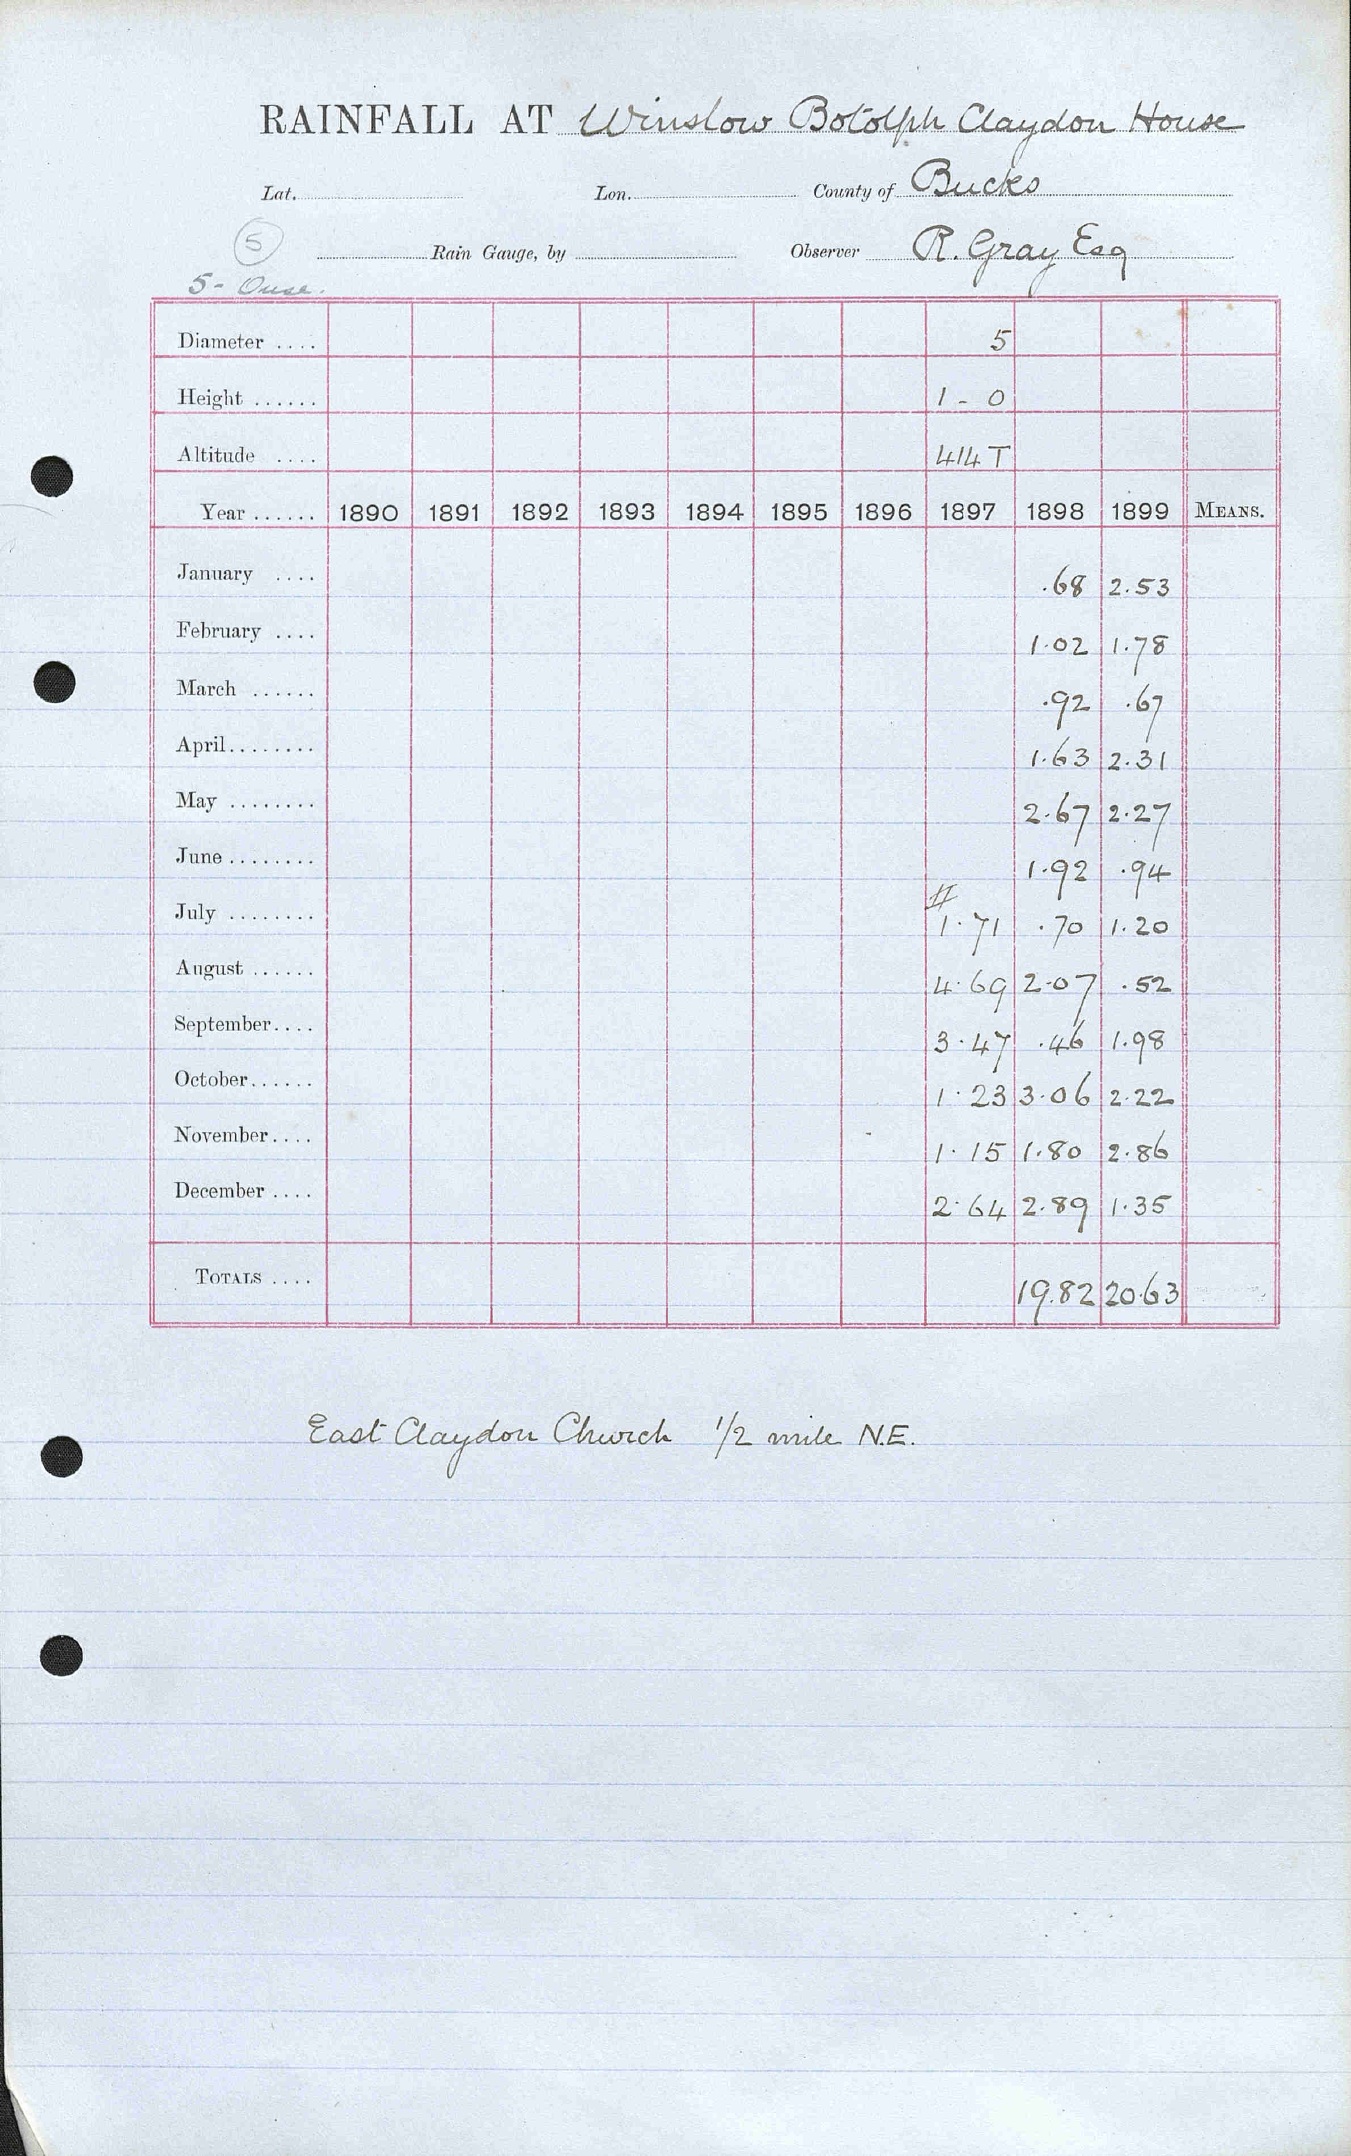 RAINFALL AT Winslow Botolph Claydon House
Lat. Lon. County of Bucks
5 Rain Gauge, by Observer R. Gray Esq
5 - Ouse.
Diameter .... 5
Height ...... 1 - 0
Altitude .... 414 T
Year ...... 1890 1891 1892 1893 1894 1895 1896 1897 1898 1899 MEANS.
January .... .68 2.53
February .... 1.02 1.78
March ...... .92 .67
April........ 1.63 2.31
May ........ 2.67 2.27
June ........ 1.92 .94
#
July ........ 1.71 .70 1.20
August ...... 4.69 2.07 .52
September.... 3.47 .46 1.98
October...... 1.23 3.06 2.22
November.... 1.15 1.80 2.86
December .... 2.64 2.89 1.35
TOTALS .... 19.82 20.63
East Claydon Church 1/2 mile N.E.